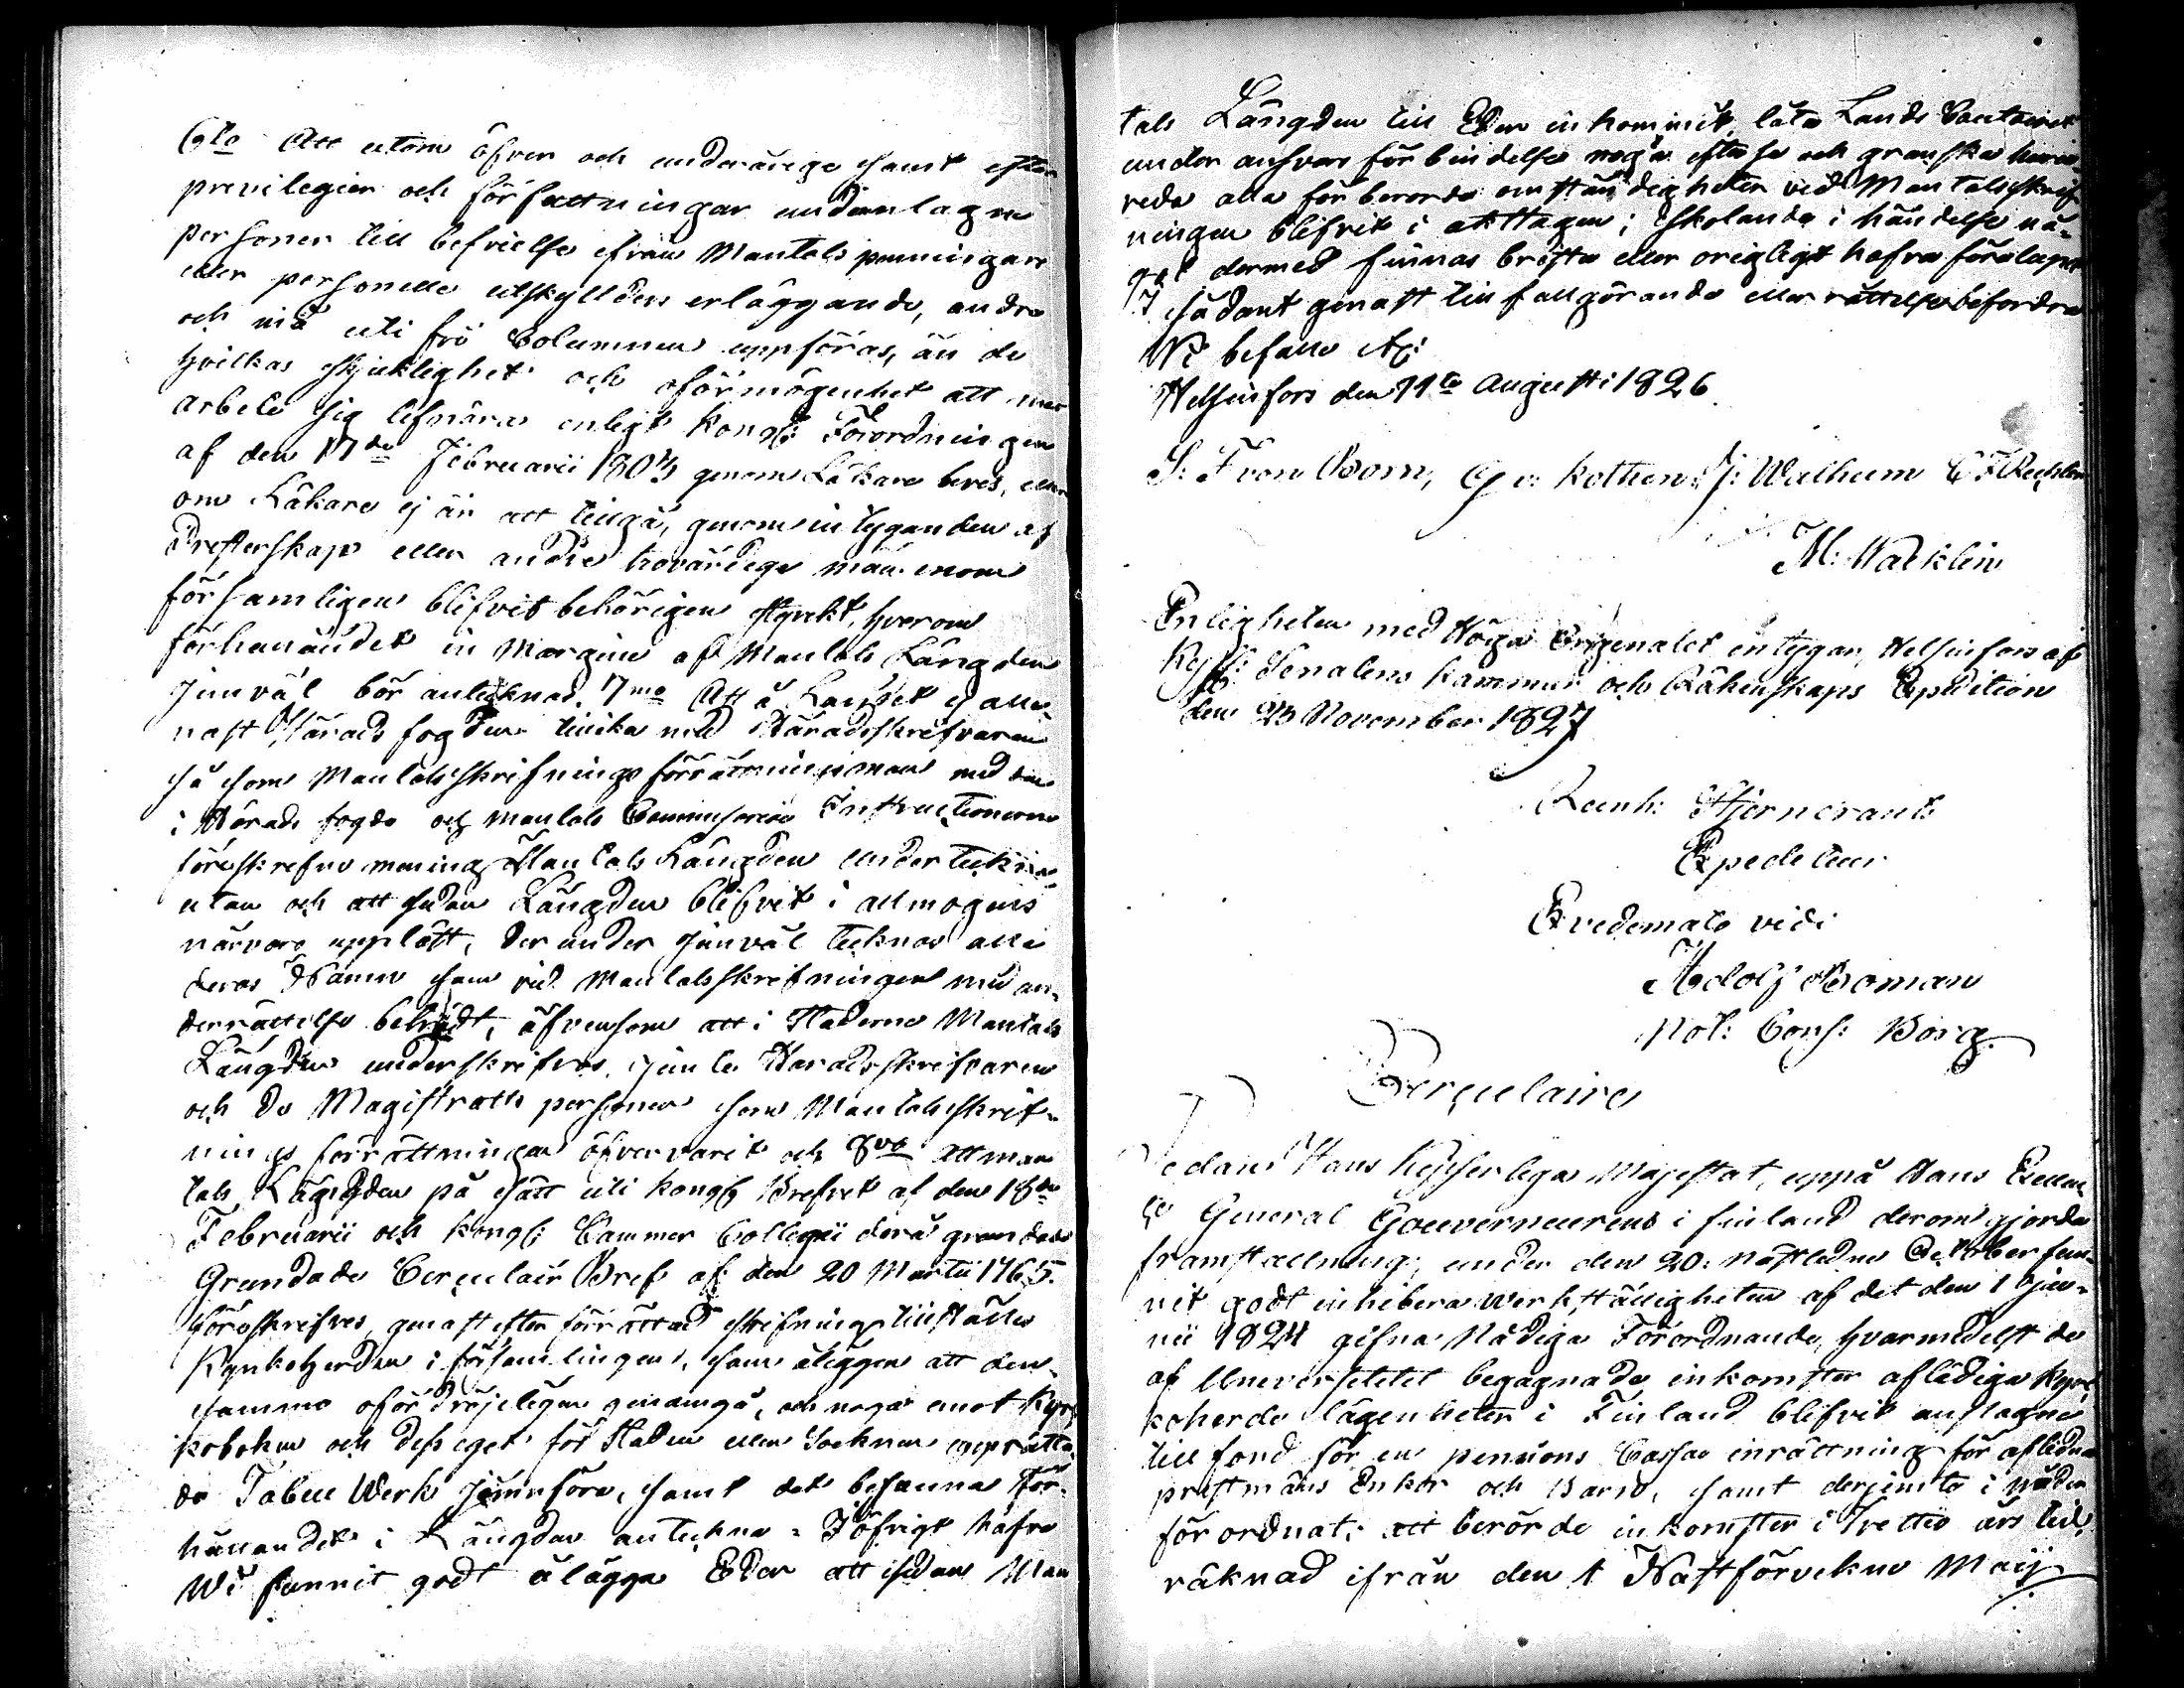 6to Att utom öfver och underårige samt efter
previlegier och författningar undantagne
personer till befrielse ifrån Mantals penningars
eller personelle utskylders erläggande, andre
ej må uti fri Columnen uppföras, än de
hvilkas sjuklighet och oförmögenhet att med
arbete sig lifnära enligt Kongl: Förordningen
af den 17de Februarii 1803 genom Läkare bevis, eller
om Läkare ej är att tillgå, genom intyganden af
Presterskap eller andre trovärdige män inom
församligen blifvit behörigen styrkt, hvarom
förhållandet in Margine af Mantals Längden
jemväl bör antecknas. 7mo Att å Landet ej alle-
nast Härads fogden tillika med Häradsskrifvaren
så som Mantalsskrifnings förrättningsman med den
i Härads fogde och Mantals Commissarie Instructionerne
föreskrefne mening Mantals Längden underteckna
utan och att sedan Längden blifvit i allmogens
närvaro uppläst, der under jemväl tecknas alle
deras Namn som vid Mantalsskrifningen med un-
derrättelse beträdt, äfvensom att i Städerne Mantals
Längden underskrifves, jemte Häradsskrifvaren
och de Magistrats personer som Mantalsskrif-
nings förrättningen öfvervarit och 8vo att man
tals Längden på sätt uti Kongl Brefvet af den 18de
Februarii och Kongl: Cammar Collegii derå grundade
Grundade Circulair Bref af den 20 Martii 1765.
föreskrifves, genast efter förrättad skrifning tillställes
Kyrkoherden i församlingen, som åligger att den-
samma ofördröjeligen genomgå, och noga emot Kyr
koboken och dess eget för Staden eller Socknen upprätta-
de Tabell Werk jämnföra, samt det befunna för-
hållandet i Längden anteckna = I öfrigt hafve
Wi funnit godt ålägga Eder att sedan Man
tals Längden till Eder inkommit, låta Lands Contoiret
under ansvars förbindelse noga efterse och granska huru
vida alla förberörde omständigheter vid Mantalsskrif
ningen blifvit i akttagen; Skolande i händelse nå-
got dermed finnas brista eller origtigt hafva förelupit
I sådant genast till fullgörande eller rättelse befordra
Vi befalle &c:
Helsinfors den 11te Augusti 1826.
S: F von Born, G v: Kothen: J: Walheim C F Rechlin
M: Wadklin
Enligheten med Höga Originalet intygar, Helsinfors af
Kejs: Senatens Kammar och Räkenskaps Expedition
den 23 November 1827
Reinh: Stjerncrantz
Expediteur
Exedemate vidi
Adolf Boman
Not: Cons: Borg.
Circulaire
Sedan Hans Kejserliga Majestät, uppå Hans Excellen
ce General Gouverneurens i Finland derom gjorde
framställning, under den 20: nästledne October fun-
nit godt inhibera werkställigheten af det den 1 Ju-
nii 1824 gifna Nådiga Förordnande, hvarmedelst de
af Universitetet begagnade inkomster af lediga Kyr
koherde lägenheter i Finland blifvit anslagne
till fond för en pensions Cassa inrättning för aflidne
prestmäns Enkor och Barn, samt derjemte i Nåder
förordnat: att berörde inkomster i Trettio års tid,
räknad ifrån den 1 Nästförvekne Maij